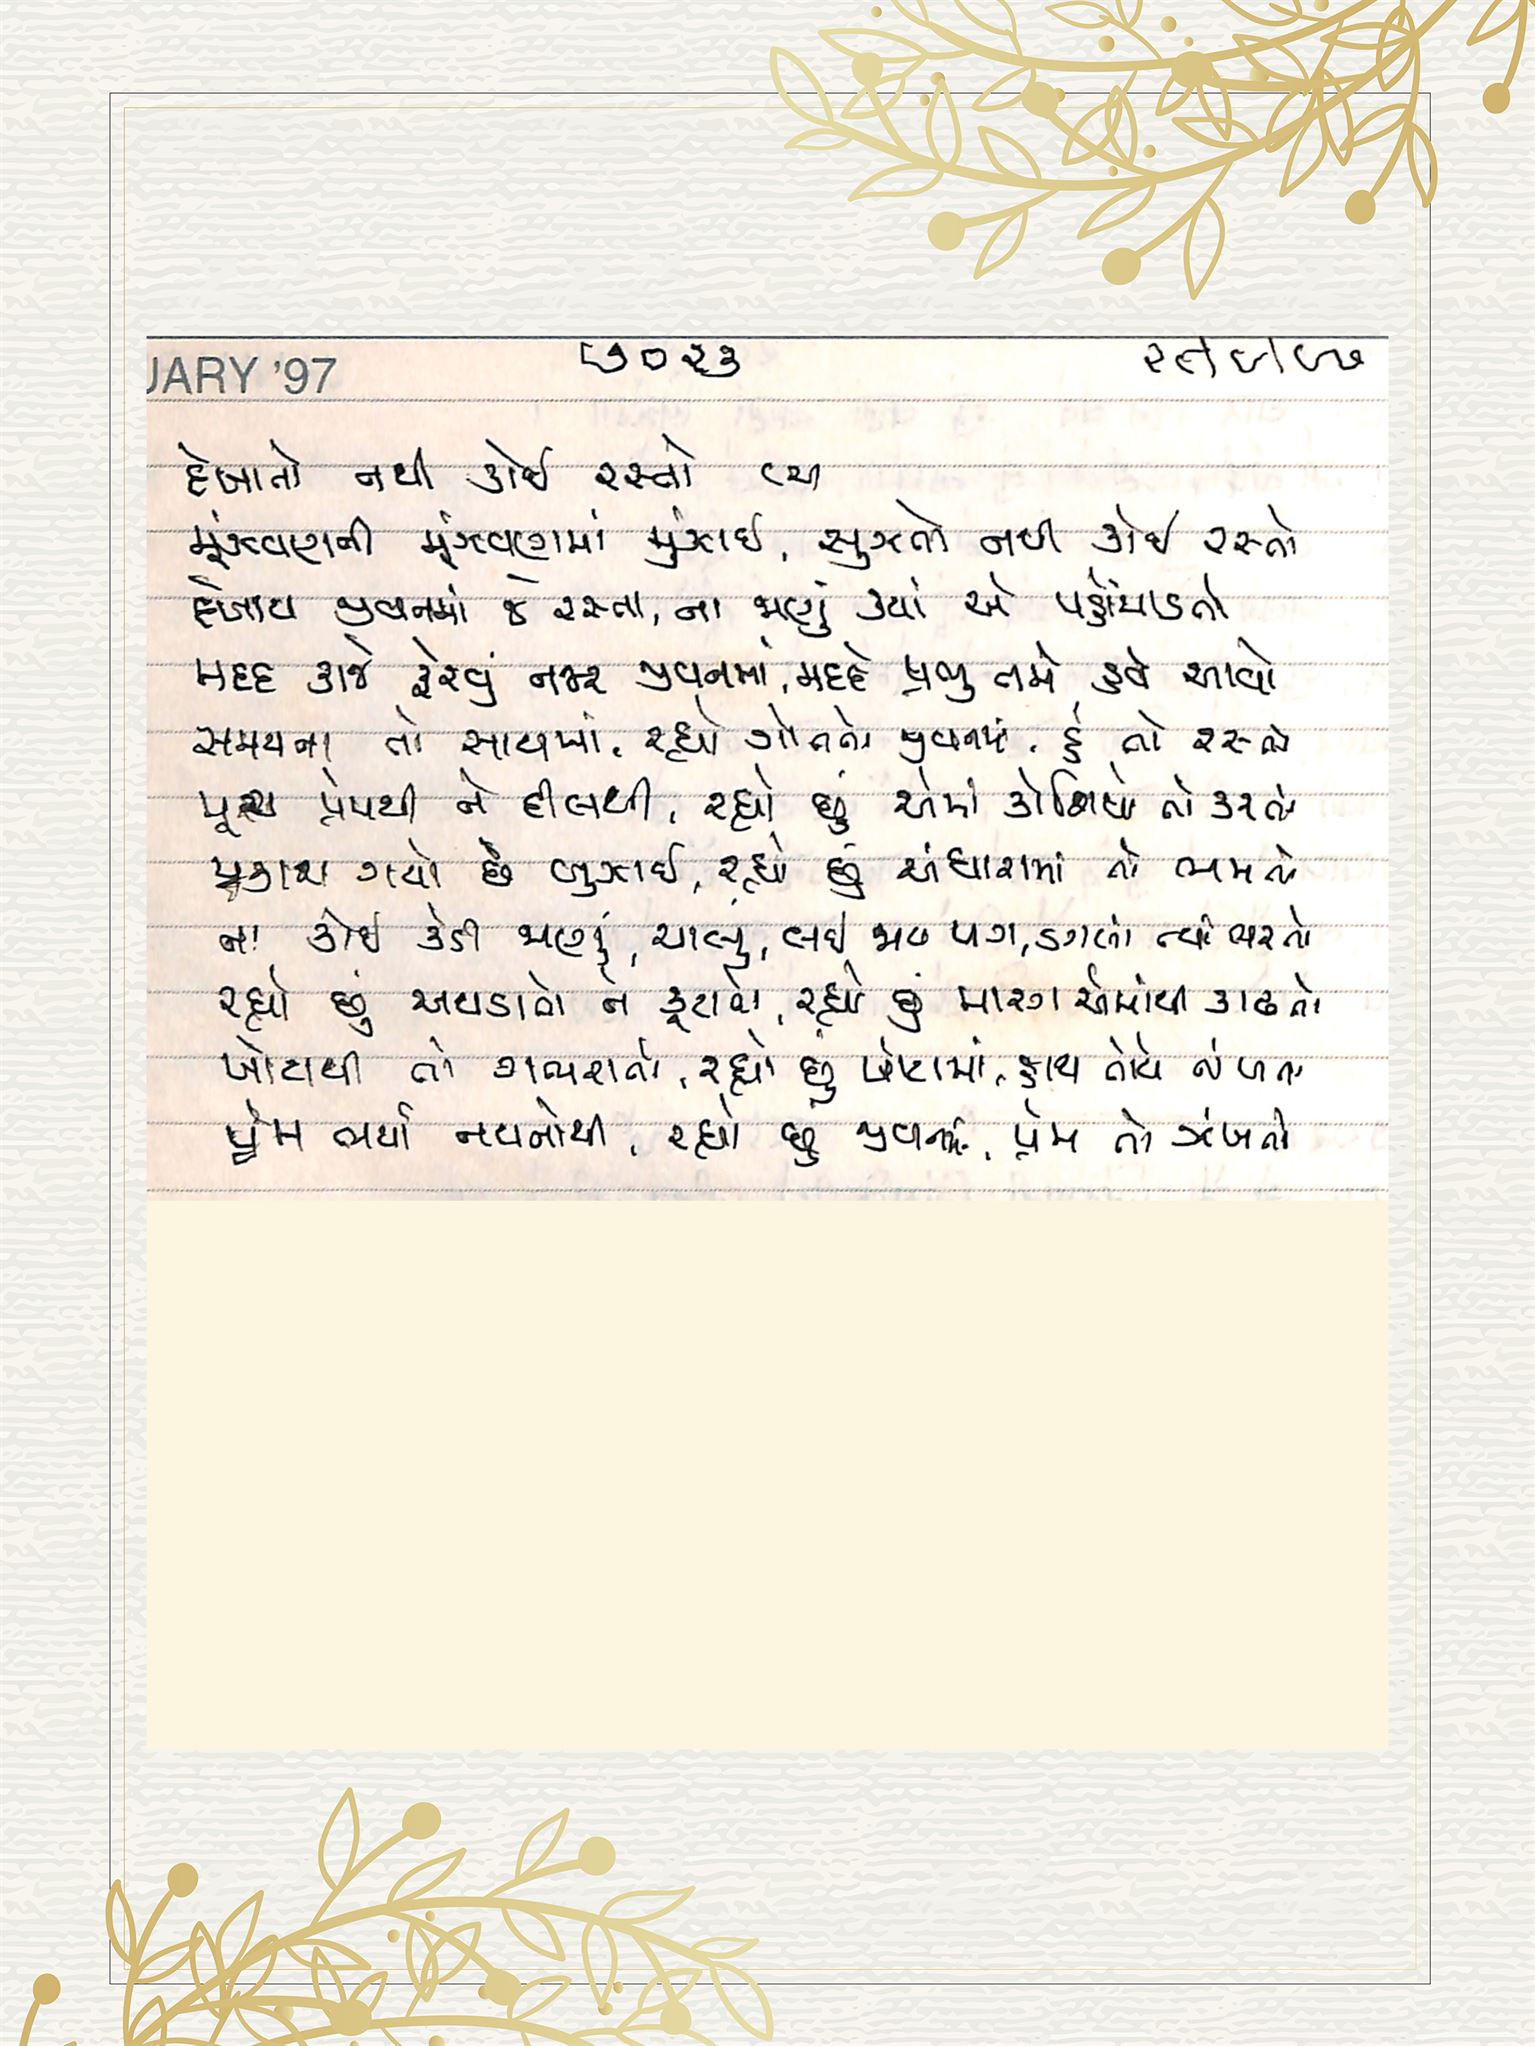 UARY '97 ૭૦૨૩
દેખાતો નથી કોઈ રસ્તો
મૂંઝવણની મૂંઝવણમાં મુંઝાઈ, સુઝતો નથી કોઈ રસ્તો
દેખાય જીવનમાં જે રસ્તા, ના જાણું ક્યાં એ પહોંચાડતો
મદદ કાજે ફેરવું નજર જીવનમાં, મદદે પ્રભુ તમે હવે આવો
સમયના તો સાથમાં, રહ્યો ગોતતો જીવનમાં, હું તો રસ્તો
પ્રેમથી ને દીલથી, રહ્યો છું એમાં કોશિષો તો કરતો
પ્રકાશ ગયો છે બુઝાઈ, રહ્યો છું અંધારામાં તો ભમતો
ના કોઈ કેડી જાણું, ચાલું, લઈ જાય પગ, ડગલાં ત્યાં ભરતો
રહ્યો છું અથડાતો ને કૂટાતો, રહ્યો છું મારગ એમાંથી કાઢતો
ખોટાથી તો ગભરાતો, રહ્યો છું ખોટામાં, હાથ તોયે નાંખતો
પ્રેમ ભર્યા નયનોથી, રહ્યો છું જીવનમાં, પ્રેમ તો ઝંખતો